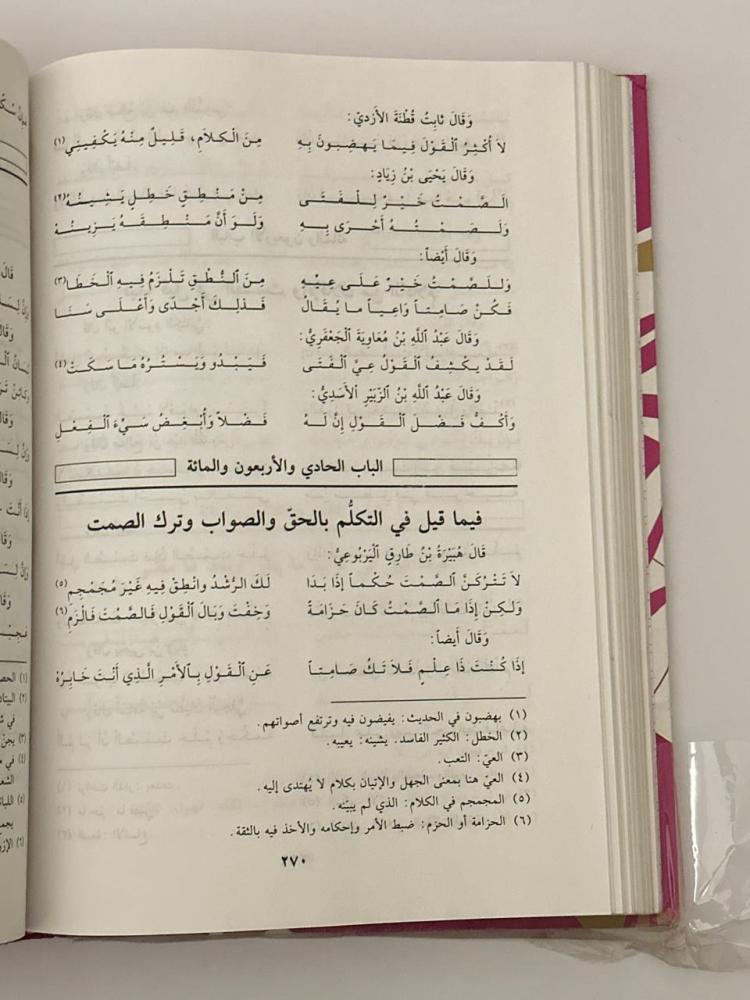 وَقَالَ ثابِتُ قُطْنَةَ الأَزدِيّ:
لاَ أُكْثِرُ ٱلْقَوْلَ فِيمَا يَهضِبُونَ بِهِ مِنَ ٱلْكَلاَمِ، قَلِيلٌ مِنْهُ يَكْفِينِي (١)
وَقَالَ يَحْيَى بْنُ زِيَادٍ:
الصَّمْتُ خَيْرٌ لِلْفَتَى مِنْ مَنْطِقٍ خَطِلٍ يَشِينُهُ (٢)
وَلَصَمْتُهُ أَحْرَى بِهِ وَلَوَ أَنَّ مَنْطِقَهُ يَزِينُهُ
وَقَالَ أَيْضاً:
وَلَلصَّمْتُ خَيْرٌ عَلَى عِيِّهِ مِنَ ٱلنُّطْقِ تَلْزَمُ فِيهِ ٱلْخَطَا (٣)
فَكُنْ صَامِتاً وَاعِياً ما يُقَالُ فَذلِكَ أَجْدَى وَأَعْلَى سَنَا
وَقَالَ عَبْدُ اللَّهِ بْنُ مُعَاوِيَةَ الْجَعْفَرِيُّ:
لَقَدْ يَكْشِفُ ٱلْقَوْلُ عِيَّ ٱلْفَتَى فَيَبْدُو وَيَسْتُرُهُ مَا سَكَتْ (٤)
وَقَالَ عَبْدُ اللَّهِ بْنُ الزَّبِيْرِ الأَسَدِيُّ:
وَأَكُفُّ فَضْلَ ٱلْقَوْلِ إِنَّ لَهُ فَضْلاً وَأُبْغِضُ سَيِّءَ ٱلْفِعْلِ
الباب الحادي والأربعون والمائة
فيما قيل في التكلُّم بالحقّ والصواب وترك الصمت
قَالَ هُبَيْرَةُ بْنُ طَارِقٍ ٱلْيَرْبُوعِيُّ:
لاَ تَتْرُكَنَّ ٱلصَّمْتَ حُكْماً إِذَا بَدَا لَكَ الرُّشْدُ وانْطِقْ فِيهِ غَيْرَ مُجَمْجِمِ (٥)
وَلَكِنْ إِذَا مَا ٱلصَّمْتُ كَانَ حَزَامَةً وَخِفْتَ وَبَالَ ٱلْقَوْلِ فَالصَّمْتَ فَالْزَمِ (٦)
وَقَالَ أَيضاً:
إِذَا كُنْتَ ذَا عِلْمٍ فَلاَ تَكُ صَامِتاً عَنِ ٱلْقَوْلِ بِٱلأَمْرِ الَّذِي أَنْتَ خَابِرُهْ
(١) يهضبون في الحديث: يفيضون فيه وترتفع أصواتهم.
(٢) الخطل: الكثير الفاسد. يشينه: يعيبه.
(٣) العيّ: التعب.
(٤) العيّ هنا بمعنى الجهل والإتيان بكلام لا يُهتدى إليه.
(٥) المجمجم في الكلام: الذي لم يبيّنه.
(٦) الحزامة أو الحزم: ضبط الأمر وإحكامه والأخذ فيه بالثقة.
٢٧٠